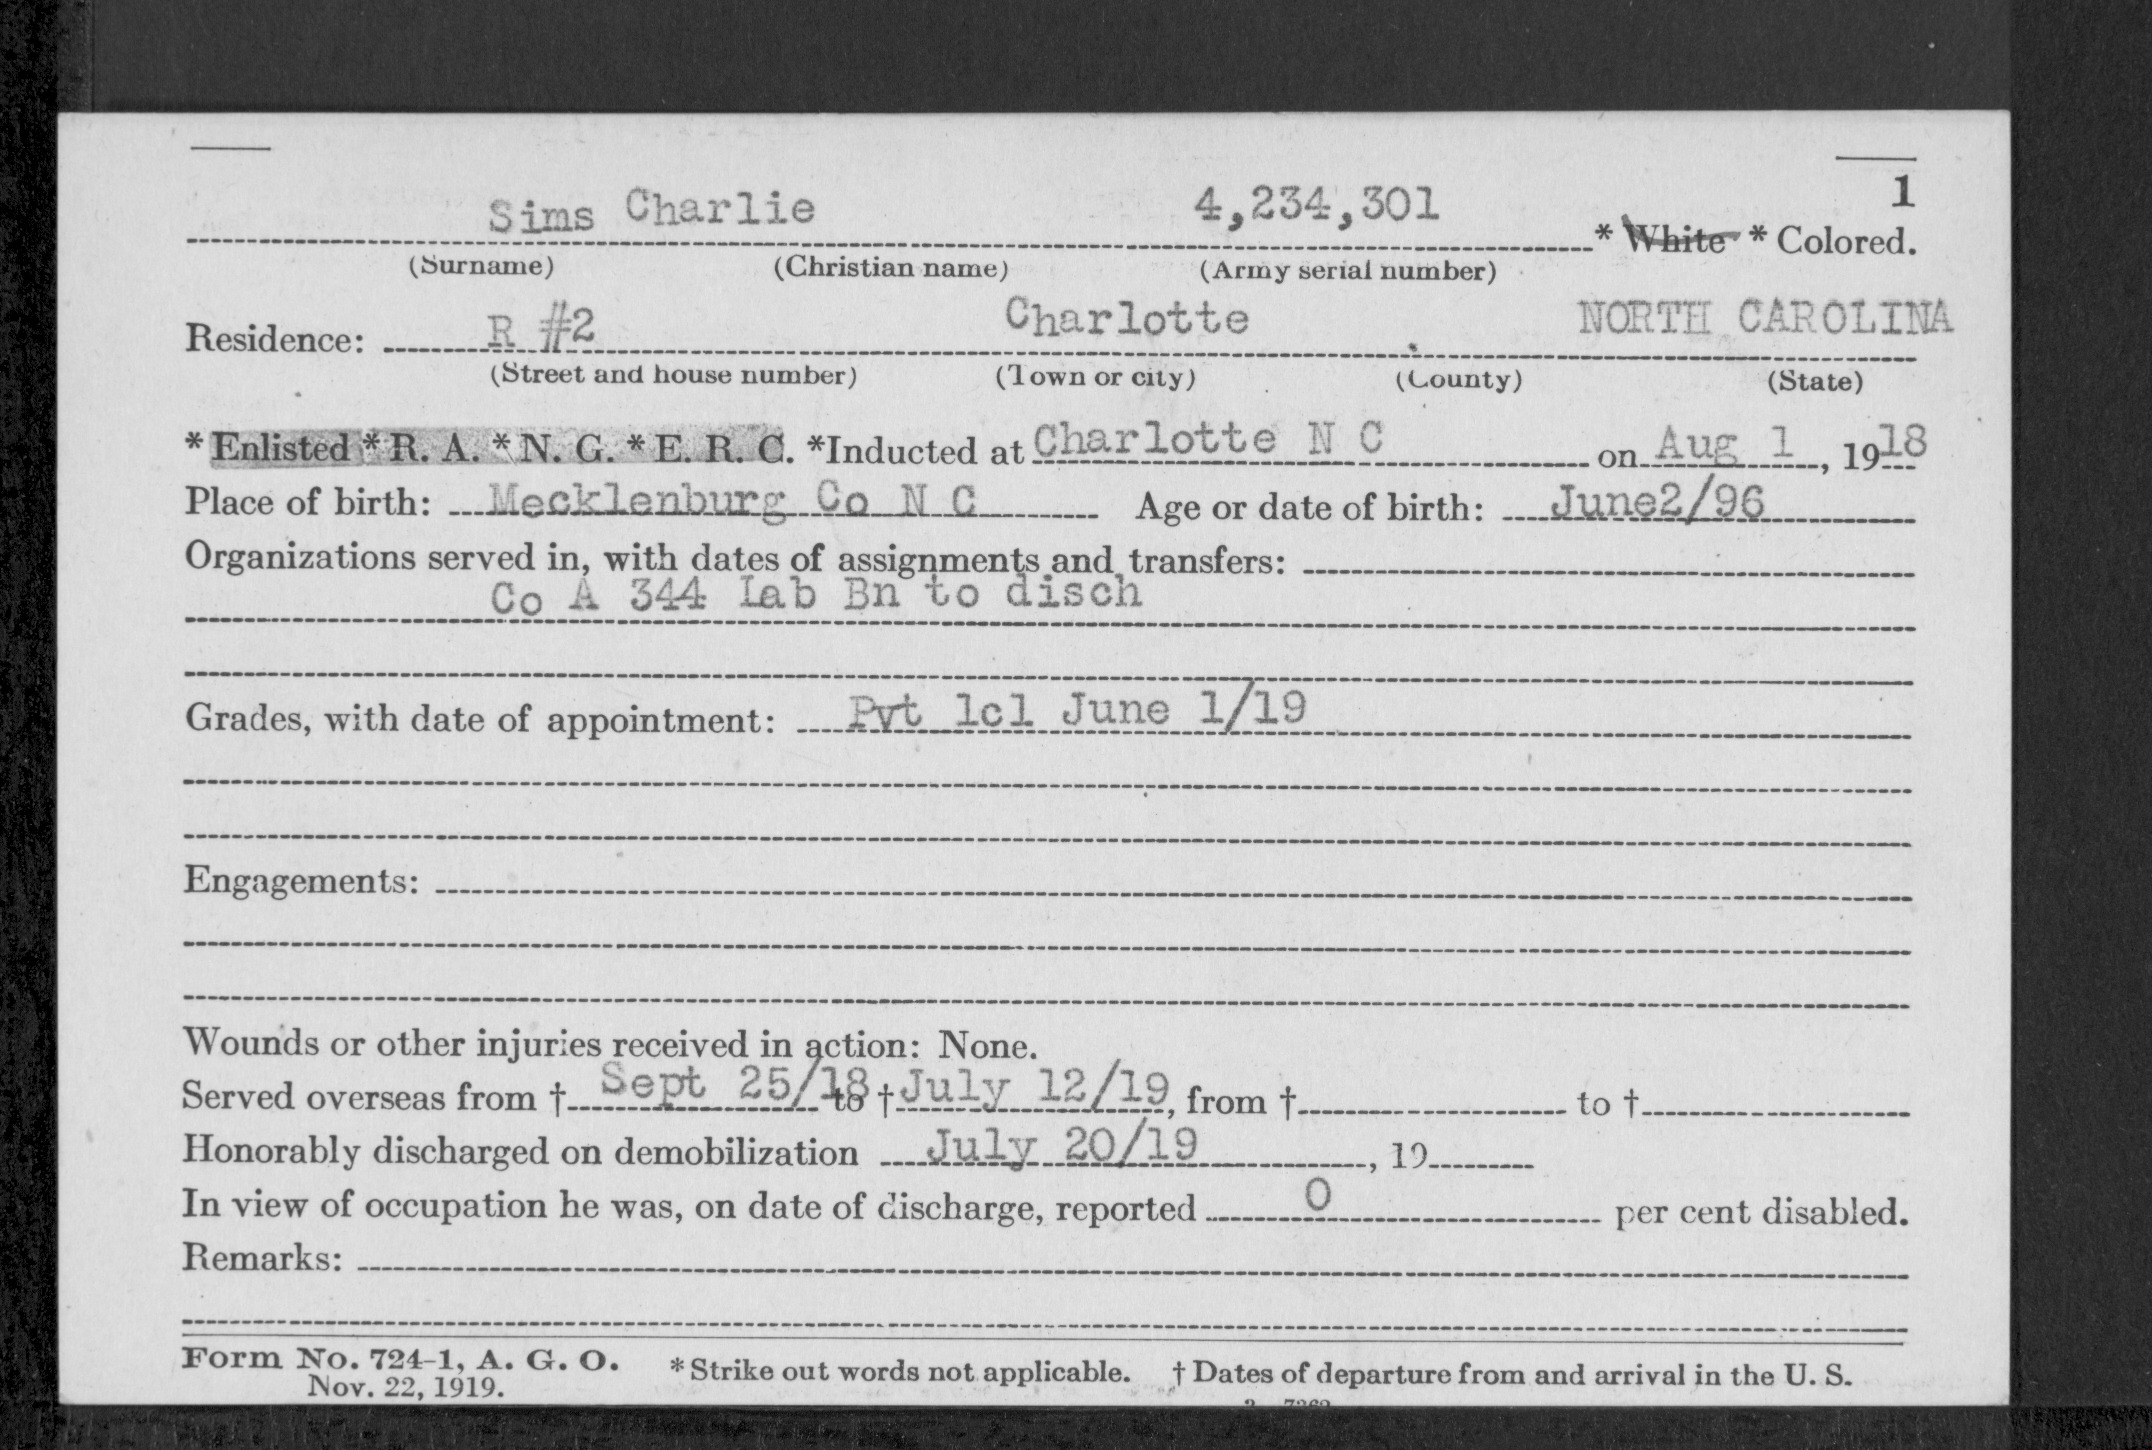 1
Sims Charlie 4,234,301 * White * Colored.
(Surname) (Christian name) (Army serial number)
Residence: R #2 Charlotte NORTH CAROLINA
(Street and house number) (Town or city) (County) (State)
* Enlisted * R. A. * N. G. * E. R. C. *Inducted at Charlotte N C on Aug 1, 1918
Place of birth: Mecklenburg Co N C Age or date of birth: June2/96
Organizations served in, with dates of assignments and transfers:
Co A 344 Lab Bn to disch
Grades, with date of appointment: Pvt 1cl June 1/19
Engagements:
Wounds or other injuries received in action: None.
Served overseas from † Sept 25/18 to † July 12/19, from † to †
Honorably discharged on demobilization July 20/19, 19
In view of occupation he was, on date of discharge, reported 0 per cent disabled.
Remarks:
Form No. 724-1, A. G. O. * Strike out words not applicable. † Dates of departure from and arrival in the U. S.
Nov. 22, 1919.